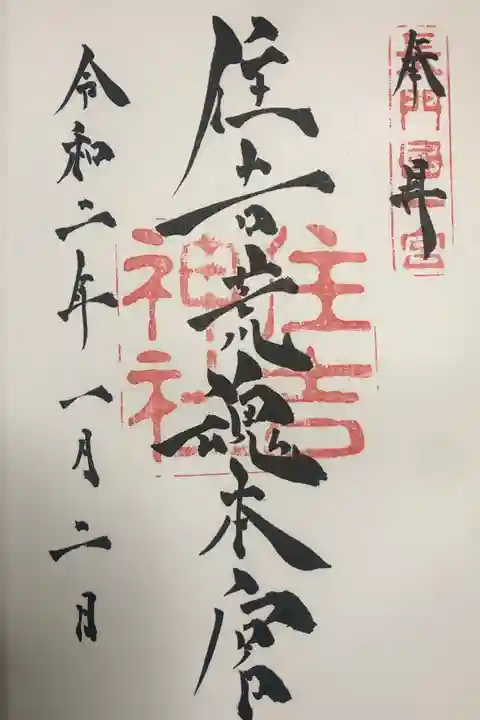 奉拝
長門国一宮
住吉荒魂本宮
住吉神社
令和二年一月二日